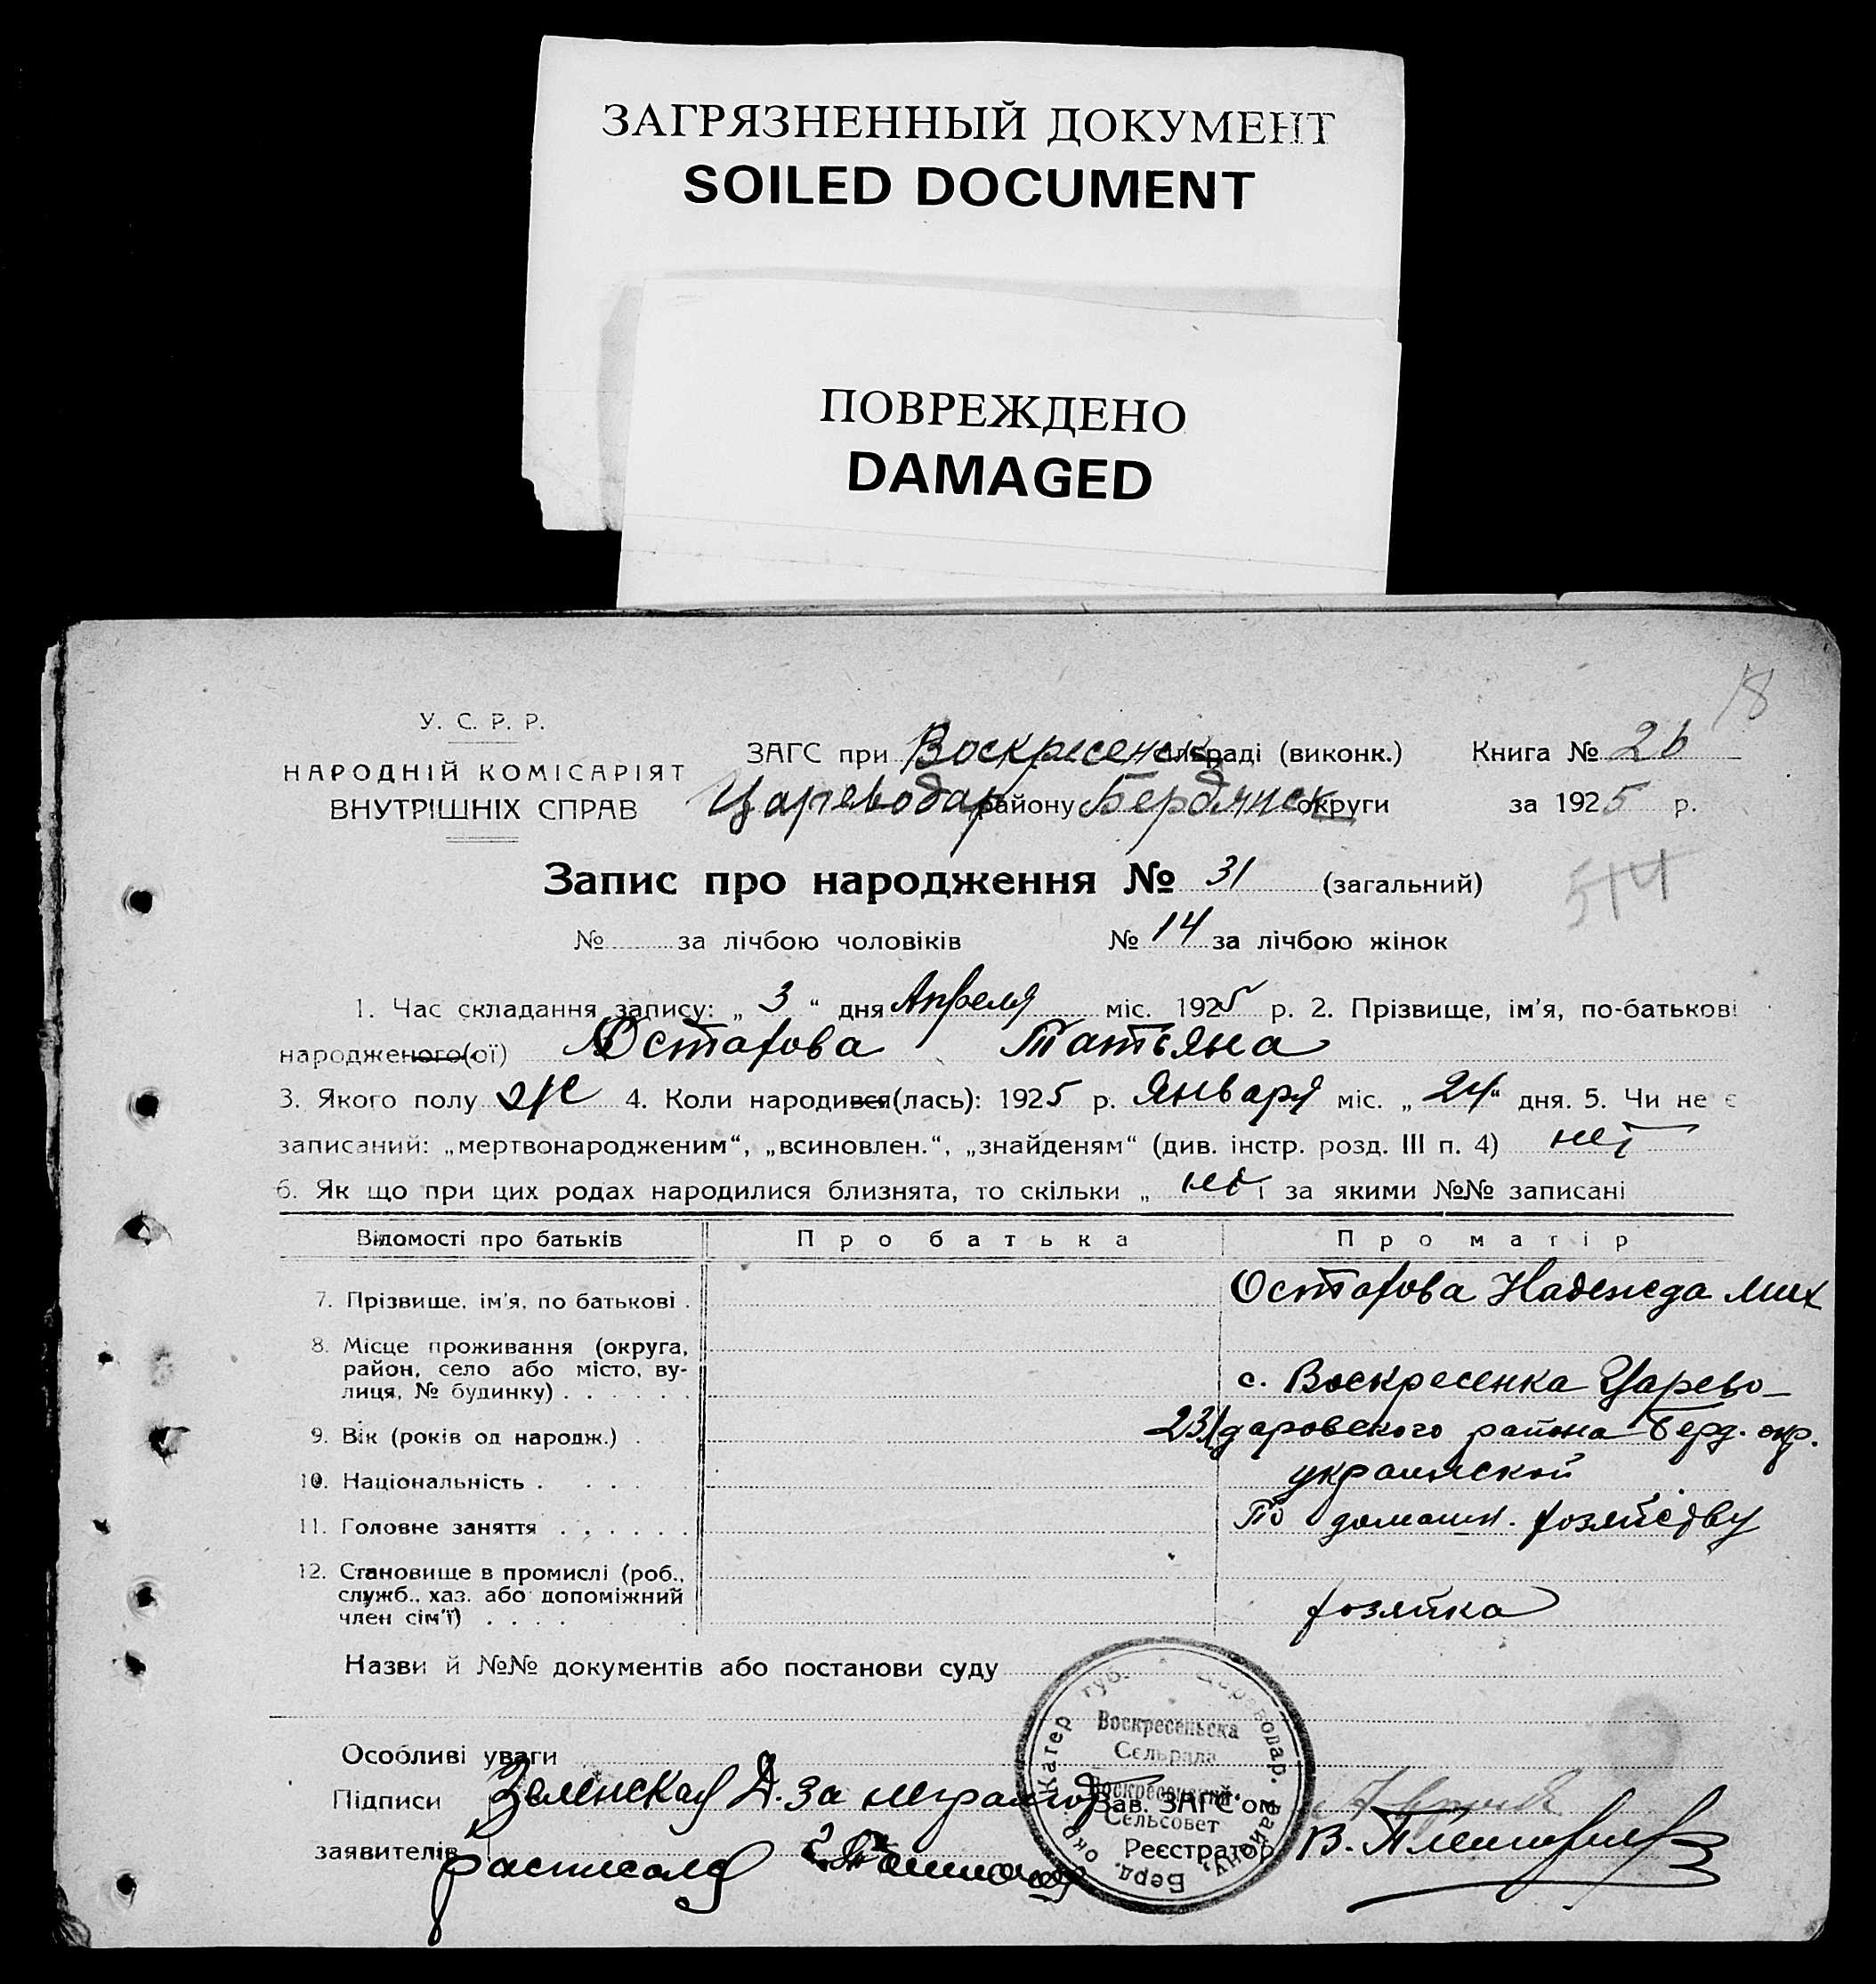 ЗАГРЯЗНЕННЫЙ ДОКУМЕНТ
SOILED DOCUMENT
ПОВРЕЖДЕНО
DAMAGED
18
У. С. Р. Р.
НАРОДНІЙ КОМІСАРІЯТ
ВНУТРІШНІХ СПРАВ
ЗАГС при Воскресенск сільраді (виконк.) Книга № 2б
Цареводар району Бердянск округи за 1925 р.
Запис про народження № 31 (загальний)
514
№ за лічбою чоловіків № 14 за лічбою жінок
1. Час складання запису: „ 3 “ дня Апреля міс. 1925 р. 2. Прізвище, ім'я, по-батькові
народженого(ої) Остафова Татьяна
3. Якого полу ж 4. Коли народився(лась): 1925 р. Января міс. „ 24 “ дня. 5. Чи не є
записаний: „мертвонародженим“, „всиновлен.“, „знайденям“ (див. інстр. розд. III п. 4) нет
6. Як що при цих родах народилися близнята, то скільки „ нет і за якими №№ записані
Відомості про батьків Про батька Про матір
7. Прізвище, ім'я, по батькові . Остафова Надежда Мих
8. Місце проживання (округа,
район, село або місто, ву-
лиця, № будинку) . . . . . . с. Воскресенка Царево-
9. Вік (років од народж.) . 23 даровского района Берд. окр.
10. Національність . . . . . украинской
11. Головне заняття . . . . . . По домашн. хозяйству
12. Становище в промислі (роб.,
служб., хаз. або допоміжний
член сім'ї) . . . . . хозяйка
Назви й №№ документів або постанови суду
Особливі уваги
Підписи Зеленская Д. за неграмот
заявителів расписался
Зав. ЗАГС'ом
Реєстратор В.
Катер губ. Цареводар. району, Берд. окр.
Воскресенська
Сельрада
Воскресенский
Сельсовет